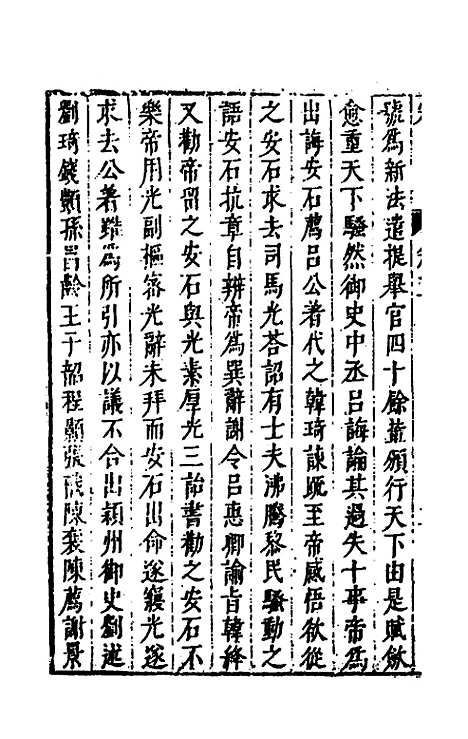 號爲新法遣提舉官四十餘輩頒行天下由是賦斂
愈重天下騷然御史中丞呂誨論其過失十事帝爲
出誨安石薦呂公著代之韓琦諫䟽至帝感悟欲從
之安石求去司馬光荅詔有士夫沸騰黎民騷動之
語安石抗章自辨帝爲巽辭謝令呂惠卿諭旨韓絳
又勸帝留之安石與光素厚光三詒書勸之安石不
樂帝用光副樞密光辭未拜而安石出命遂寢光遂
求去公著雖爲所引亦以議不合出潁州御史劉述
劉琦錢顗孫昌齡王子韶程顥張戩陳襄陳薦謝景